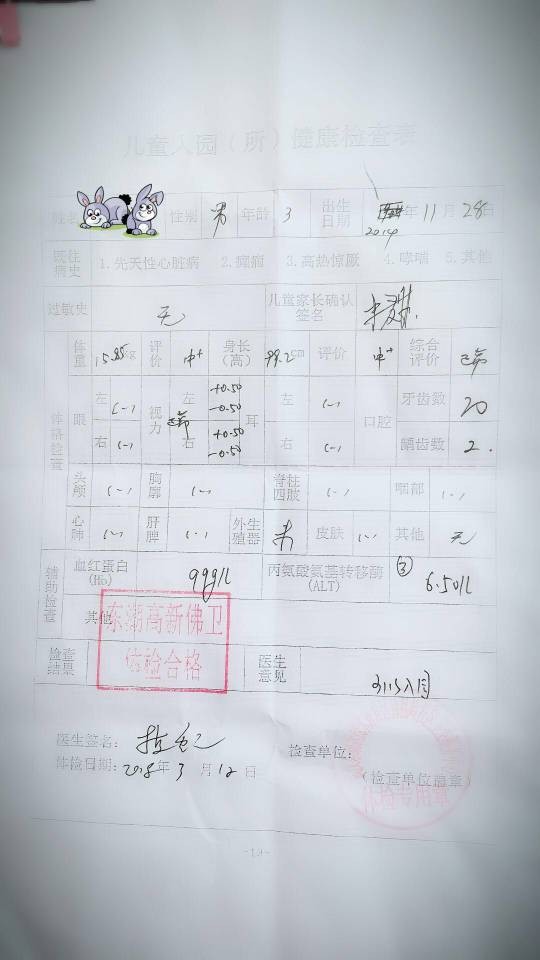 儿童入园（所）健康检查表
姓名 性别 男 年龄 3 出生日期 2014 年 11 月 28 日
既往病史 1.先天性心脏病 2.癫痫 3.高热惊厥 4.哮喘 5.其他
过敏史 无 儿童家长确认签名
体格检查 体重 15.85kg 评价 中+ 身长（高） 99.2cm 评价 中+ 综合评价 正常
眼 左 (-) 视力 正常 左 +0.50 -0.50 耳 左 (-) 口腔 牙齿数 20
右 (-) 右 +0.50 -0.50 右 (-) 龋齿数 2.
头颅 (-) 胸廓 (-) 脊柱四肢 (-) 咽部 (-)
心肺 (-) 肝脾 (-) 外生殖器 未 皮肤 (-) 其他 无
辅助检查 血红蛋白(Hb) 99g/L 丙氨酸氨基转移酶(ALT) ③ 6.5U/L
其他
东湖高新佛卫
体检合格
检查结果 医生意见 可以入园
医生签名：
体检日期：2018年 3 月 12 日
检查单位：
（检查单位盖章）
体检专用章